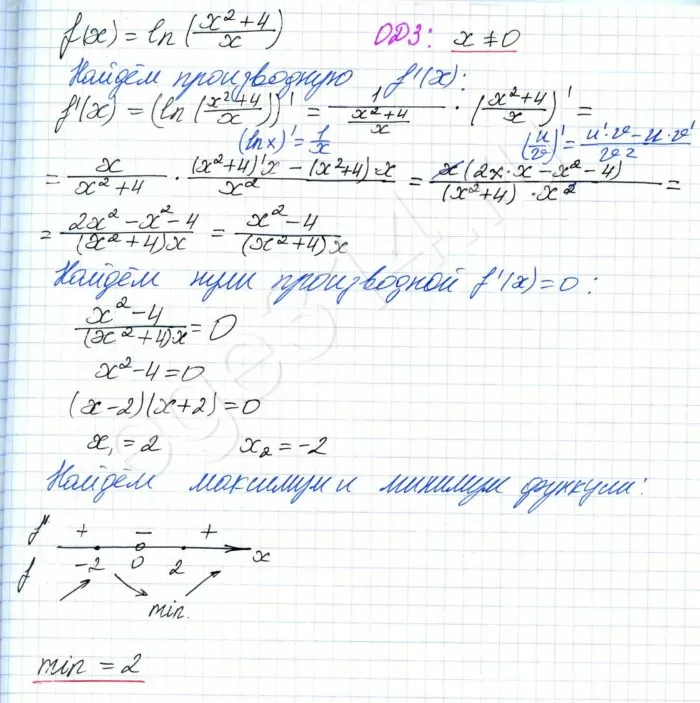 f(x) = ln (x²+4/x) ОДЗ: x ≠ 0
Найдём производную f'(x):
f'(x) = (ln (x²+4/x))' = 1/(x²+4/x) · (x²+4/x)' =
(ln x)' = 1/x (u/v)' = u'·v - u·v'/v²
= x/x²+4 · (x²+4)'x - (x²+4)·x/x² = x(2x·x - x² - 4)/(x²+4)·x² =
= 2x² - x² - 4/(x²+4)x = x² - 4/(x²+4)x
Найдём нули производной f'(x) = 0:
x² - 4/(x²+4)x = 0
x² - 4 = 0
(x-2)(x+2) = 0
x₁ = 2 x₂ = -2
Найдём максимум и минимум функции:
f' + - +
-2 0 2 x
f
min.
min = 2